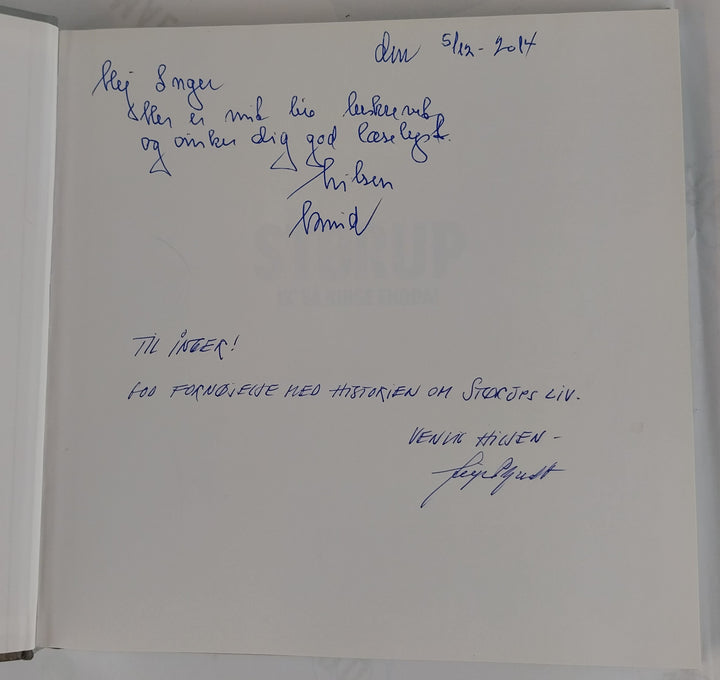 den 5/12-2014
Hej Inger
Her er mit liv beskrevet
og ønsker dig god læselyst.
hilsen
STØRUP
TIL INGER!
GOD FORNØJELSE MED HISTORIEN OM STØRUPS LIV.
VENLIG HILSEN -